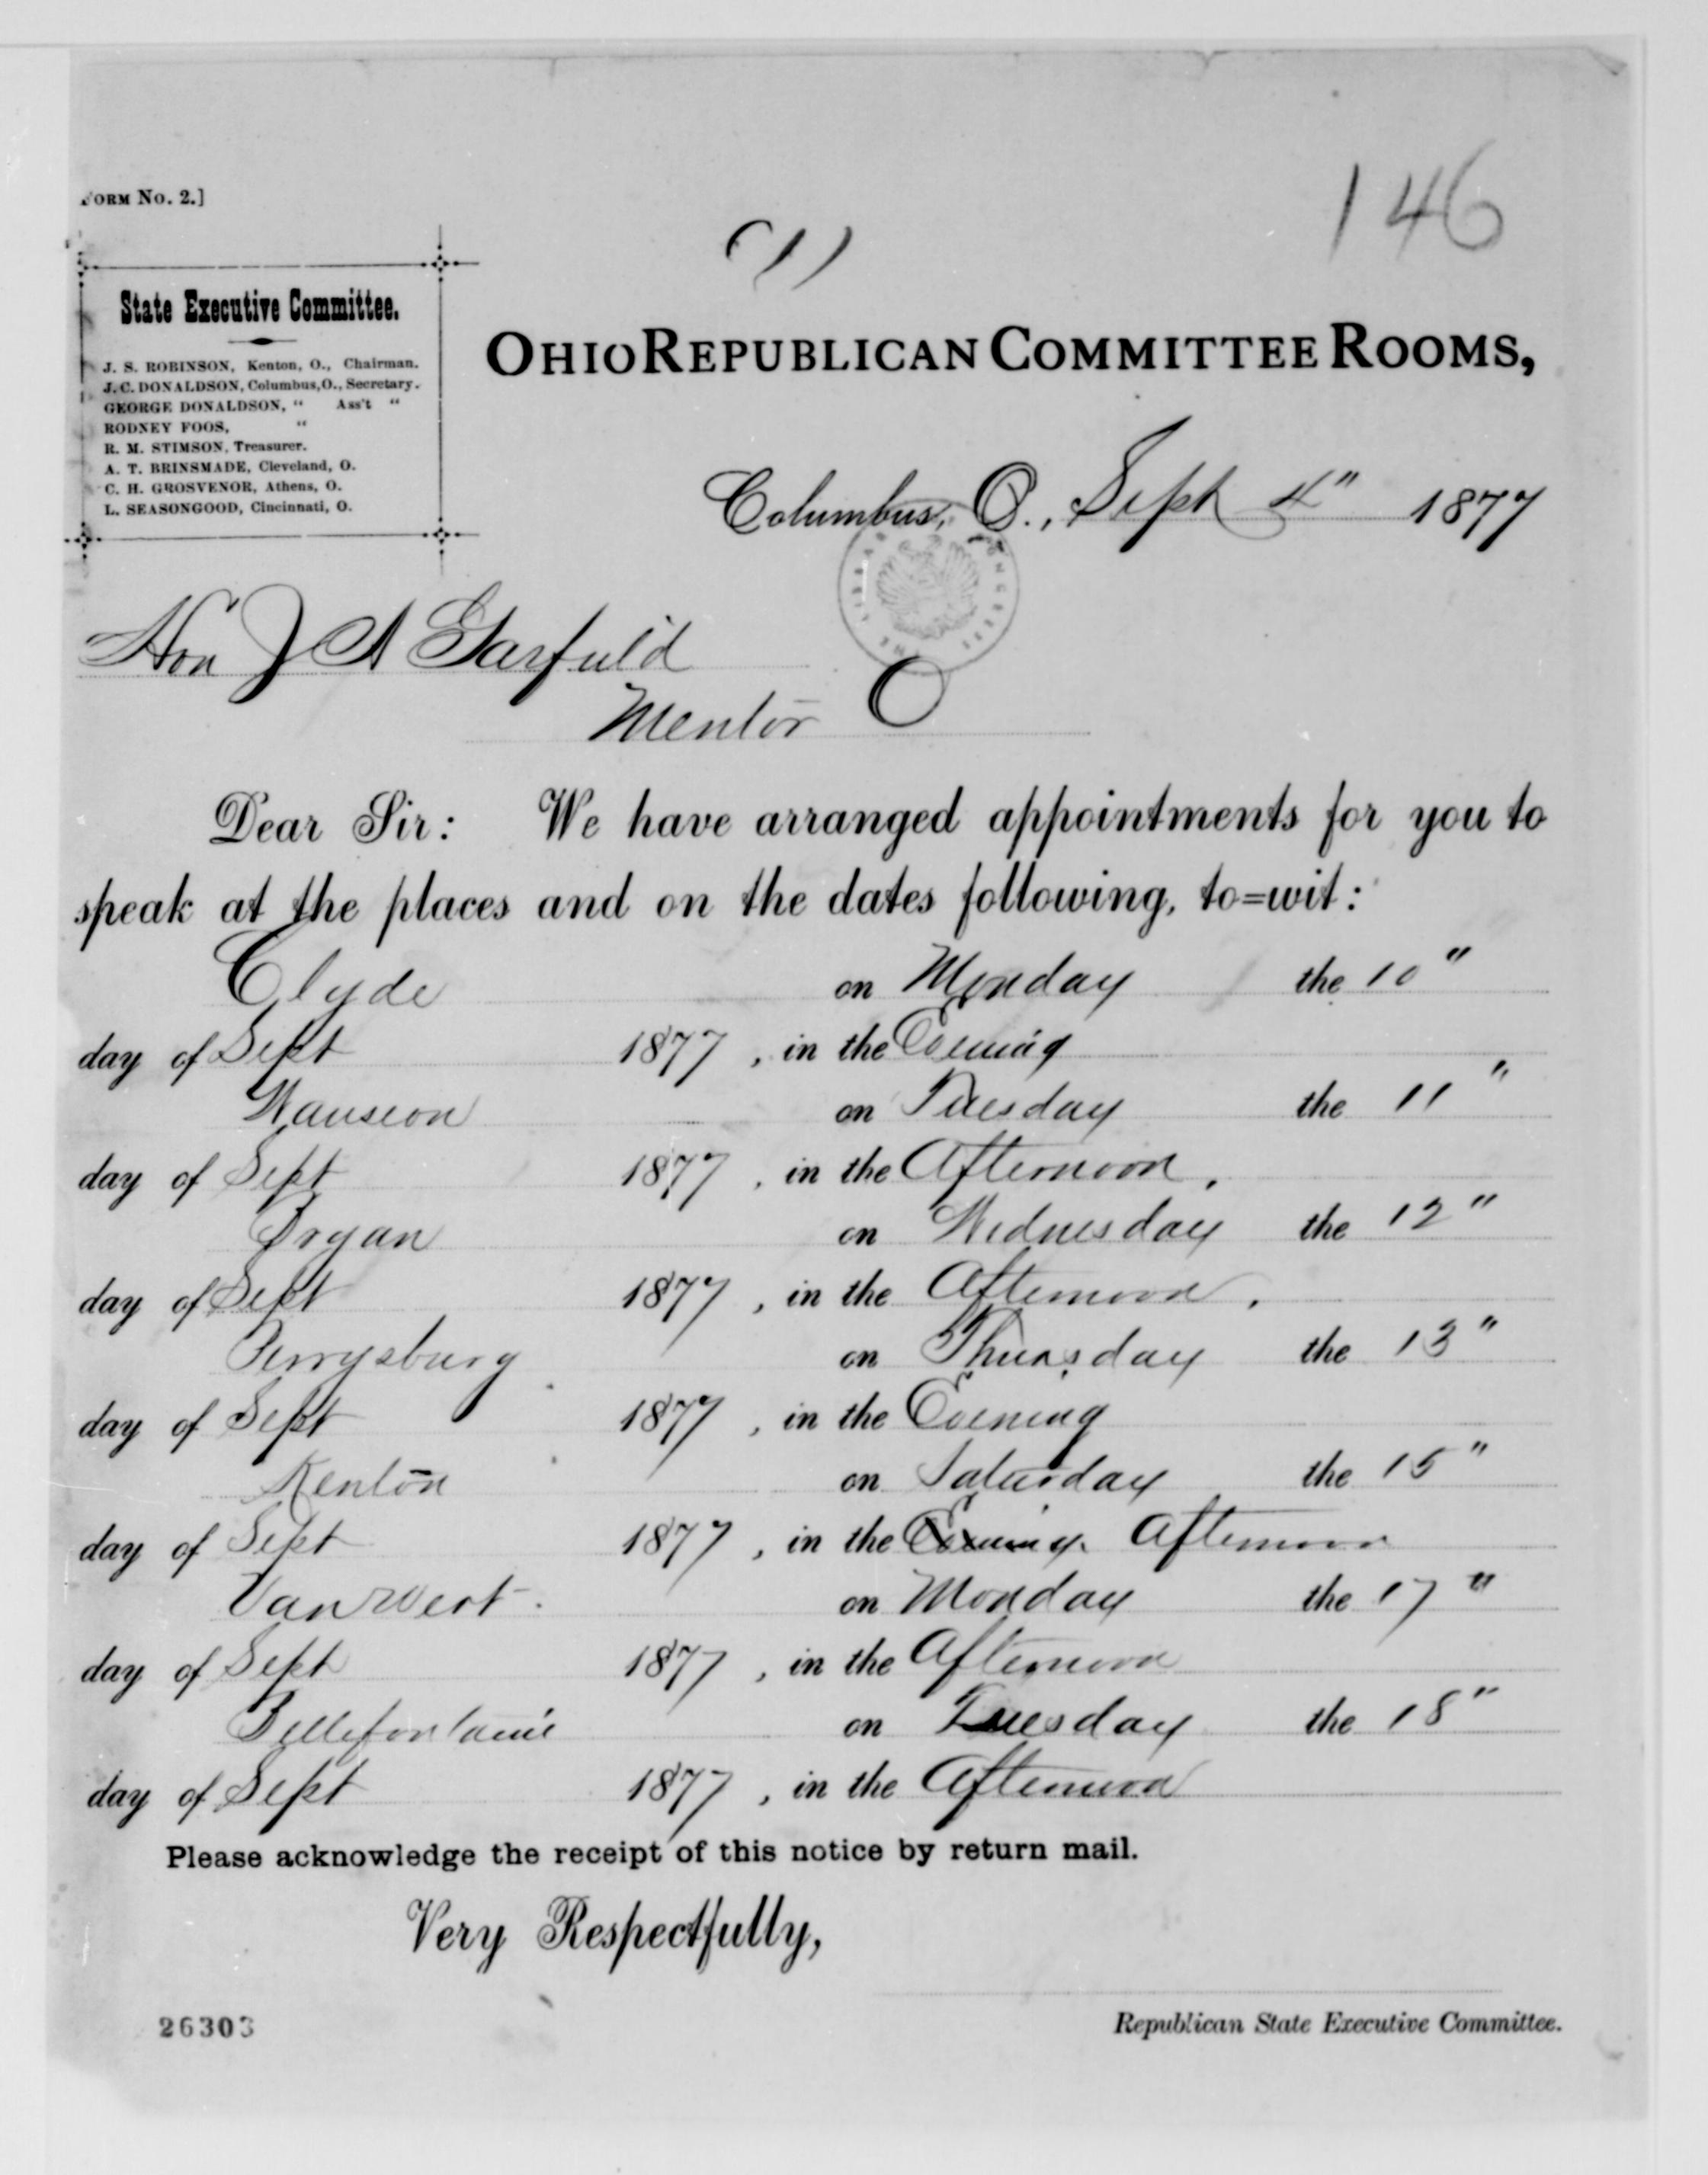 FORM No. 2.]
146
(1)
State Executive Committee.
J. S. ROBINSON, Kenton, O., Chairman.
J. C. DONALDSON, Columbus, O., Secretary.
GEORGE DONALDSON, " Ass't "
RODNEY FOOS, "
R. M. STIMSON, Treasurer.
A. T. BRINSMADE, Cleveland, O.
C. H. GROSVENOR, Athens, O.
L. SEASONGOOD, Cincinnati, O.
OHIO REPUBLICAN COMMITTEE ROOMS,
Columbus, O., Sept 4" 1877
Hon J A Garfield
Mentor O
Dear Sir: We have arranged appointments for you to
speak at the places and on the dates following, to=wit:
Clyde on Monday the 10"
day of Sept 1877, in the Evening
Wauseon on Tuesday the 11"
day of Sept 1877, in the Afternoon.
Bryan on Wednesday the 12"
day of Sept 1877, in the Afternoon.
Perrysburg on Thursday the 13"
day of Sept 1877, in the Evening
Kenton on Saturday the 15"
day of Sept 1877, in the Evening. Afternoon
Van Wert. on Monday the 17"
day of Sept 1877, in the Afternoon
Bellefontaine on Tuesday the 18"
day of Sept 1877, in the Afternoon
Please acknowledge the receipt of this notice by return mail.
Very Respectfully,
26303
Republican State Executive Committee.